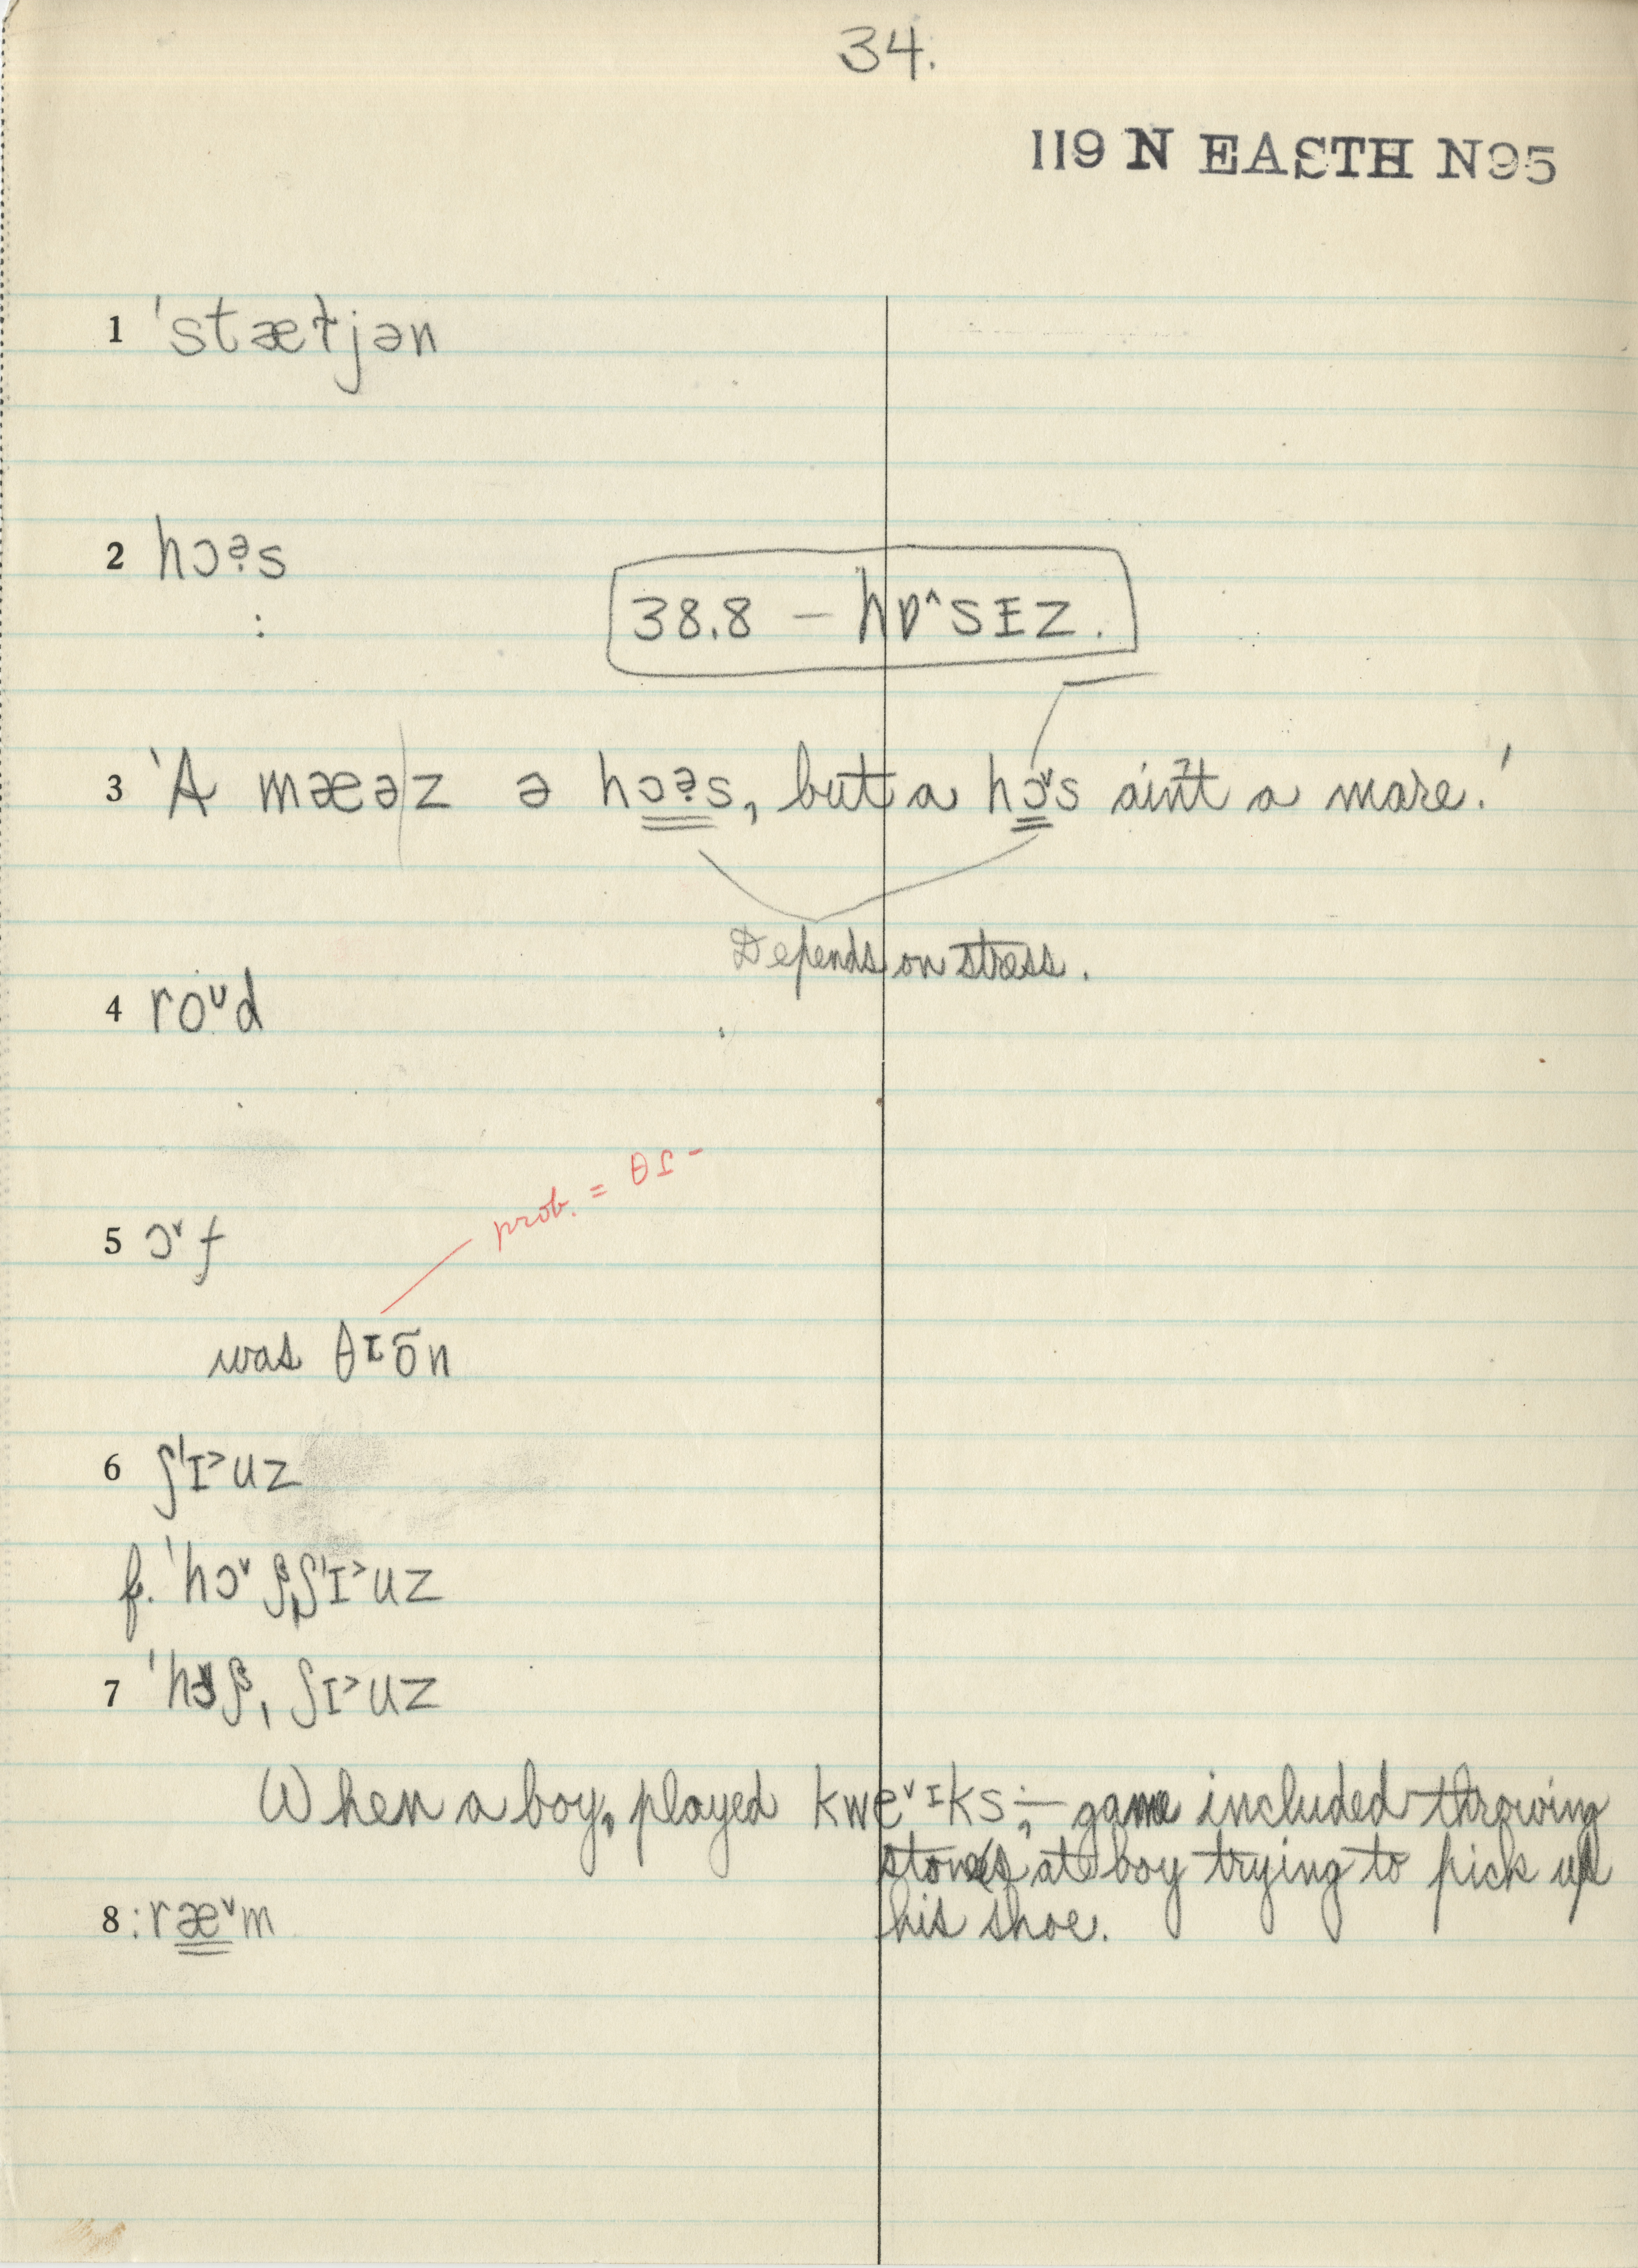 34.
119 N EASTH N95
1 'stætjən
2 hɔə̣s
:
38.8 – hɒ^sɪz.
3 'A mæə|z ə hɔə̣s, but a hɔ˅s ain't a mare.'
Depends on stress.
4 roᴜd
prob. = θɪ-
5 ɔ˅f
was θɪōn
6 ʃ'ɪ˃uz
f. 'hɔ˅ʃˌʃ'ɪ˃uz
7 'hɔ˅ʃˌʃɪ˃uz
When a boy, played kwe˅ɪks; – game included throwing
stones at boy trying to pick up
8 :ræ˅m his shoe.